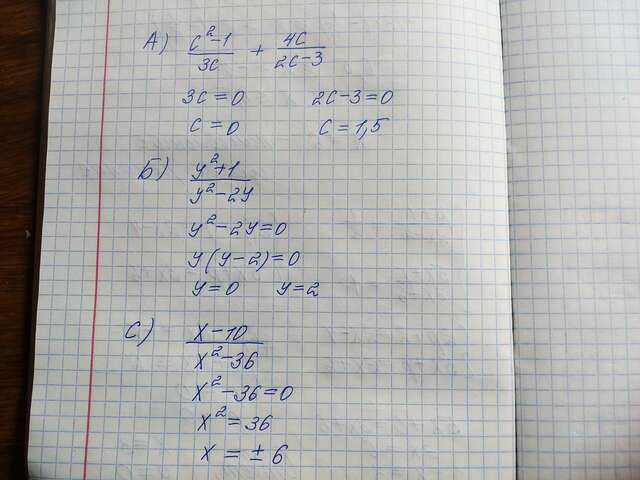 А) (c²-1)/(3c) + (4c)/(2c-3)
3c=0 2c-3=0
c=0 c=1,5
Б) (y²+1)/(y²-2y)
y²-2y=0
y(y-2)=0
y=0 y=2
С) (x-10)/(x²-36)
x²-36=0
x²=36
x=±6